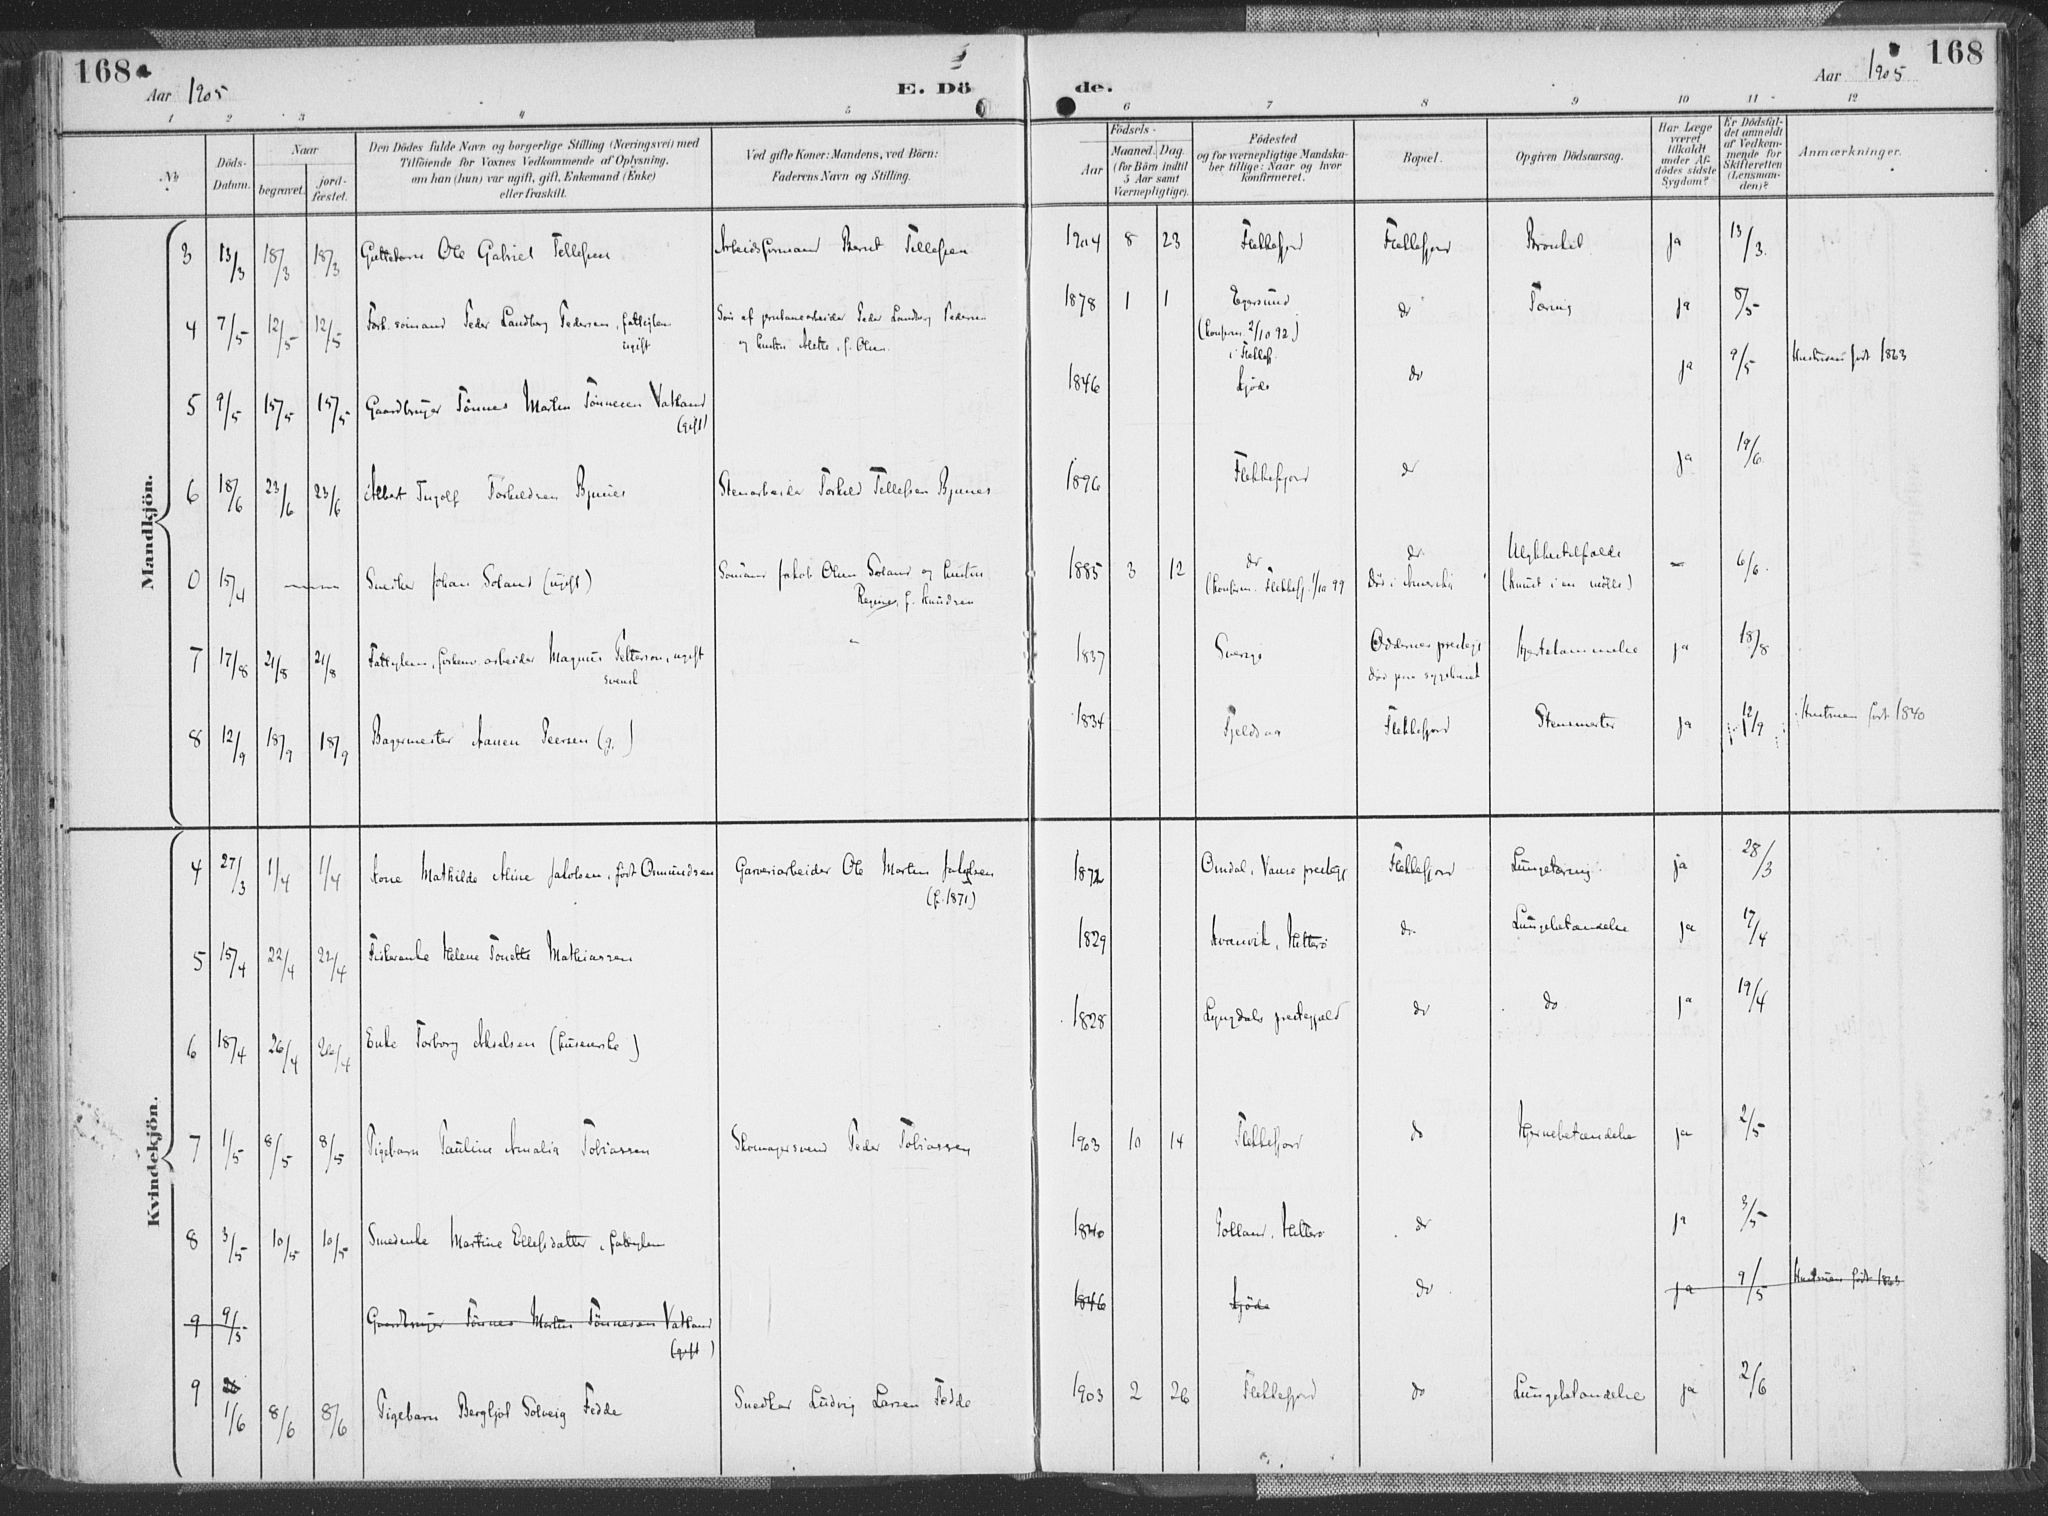 168 a
Aar 1905
E. Dö
de.
Aar 1905
168
1 2 3 4 5 6 7 8 9 10 11 12
No
Döds-Datum.
Naar
begravet.
jord-fæstet.
Den Dödes fulde Navn og borgerlige Stilling (Næringsvei) med
Tilföiende for Voxnes Vedkommende af Oplysning,
om han (hun) var ugift, gift, Enkemand (Enke)
eller fraskilt.
Ved gifte Koner: Mandens, ved Börn:
Faderens Navn og Stilling.
Födsels-
Aar
Maaned. Dag.
(for Börn indtil
5 Aar samt
Værnepligtige).
Födested
og for værnepligtige Mandska-
ber tillige: Naar og hvor
konfirmeret.
Bopæl.
Opgiven Dödsaarsag.
Har Læge
været
tilkaldt
under Af-
dödes sidste
Sygdom?
Er Dödsfal-
det anmeldt
af Vedkom-
mende for
Skifteretten
(Lensman-
den)?
Anmærkninger.
Mandkjön.
3 13/3 18/3 18/3 Guttebarn Ole Gabriel Tellefsen Arbeidsformand Bernt Tellefsen 1904 8 23 Flekkefjord Flekkefjord Bronkit ja 13/3.
4 7/5 12/5 12/5 Forh. sømand Peder Landberg Pedersen, fattiglem 1878 1 1 Egersund do Tæring ja 8/5
ugift
Søn af Peder Landberg Pedersen
og hustru Alette, f. Olsen.
(konfirm. 2/10 92)
i Flekkef.
5 9/5 15/5 15/5 Gaardbruger Tönnes Martin Tönnesen Vatland 1846 do ja 9/5 Hustruen født 1863
(gift)
6 18/6 23/6 23/6 Albert Ingolf Torkildsen Bjunes Stenarbeider Torkild Tellefsen Bjunes 1896 Flekkefjord do ja 19/6
0 15/4 —— Snedker Johan Soland (ugift) Sömand Jakob Olsen Soland og hustru 1885 3 12 do do Ulykkestilfælde — 6/6.
Regine, f. Knudsen
(konfirm. Flekkefj. 1/10 99 død i Amerika (knust i en mølle)
7 17/8 21/8 21/8 Fattiglem, arbeider Magnus Petterson, ugift 1837 Sverige Oddernes prestegj Hjertelammelse ja 18/8
svensk
død paa sygehuset
8 12/9 18/9 18/9 Bagermester Aanen Peersen (g.) 1834 Fjeldsaa Flekkefjord Stensmerter ja 12/9 Hustruen født 1840
Kvindekjön.
4 27/3 1/4 1/4 Kone Mathilde Aline Jakobsen, født Osmundsen Garveriarbeider Ole Martin Jakobsen 1872 Omdal, Vanse prestegj Flekkefjord Lungetæring. ja 28/3
(f. 1871)
5 15/4 22/4 22/4 Fiskerenke Helene Tonette Mathiassen 1829 Kvanvik, Hitterø do. Lungebetændelse ja 17/4
6 18/4 26/4 26/4 Enke Torborg Akselsen (husenke) 1828 Lyngdals prestegjæld do do ja 19/4
7 1/5 8/5 8/5 Pigebarn Pauline Amalia Tobiassen Skomagersvend Peder Tobiassen 1903 10 14 Flekkefjord do Hjernebetændelse ja 2/5
8 3/5 10/5 10/5 Smedenke Martine Ellefsdatter, fattiglem 1840 Hitterø do ja 3/5
9 9/5 Gaardbruger Tönnes Martin Tönnesen Vatland 1846 do ja 9/5 Hustruen født 1863
(gift)
9 26
1/6 8/6 8/6 Pigebarn Bergljot Solveig Fedde Snedker Ludvig Larsen Fedde 1903 2 26 Flekkefjord do Lungebetændelse ja 2/6